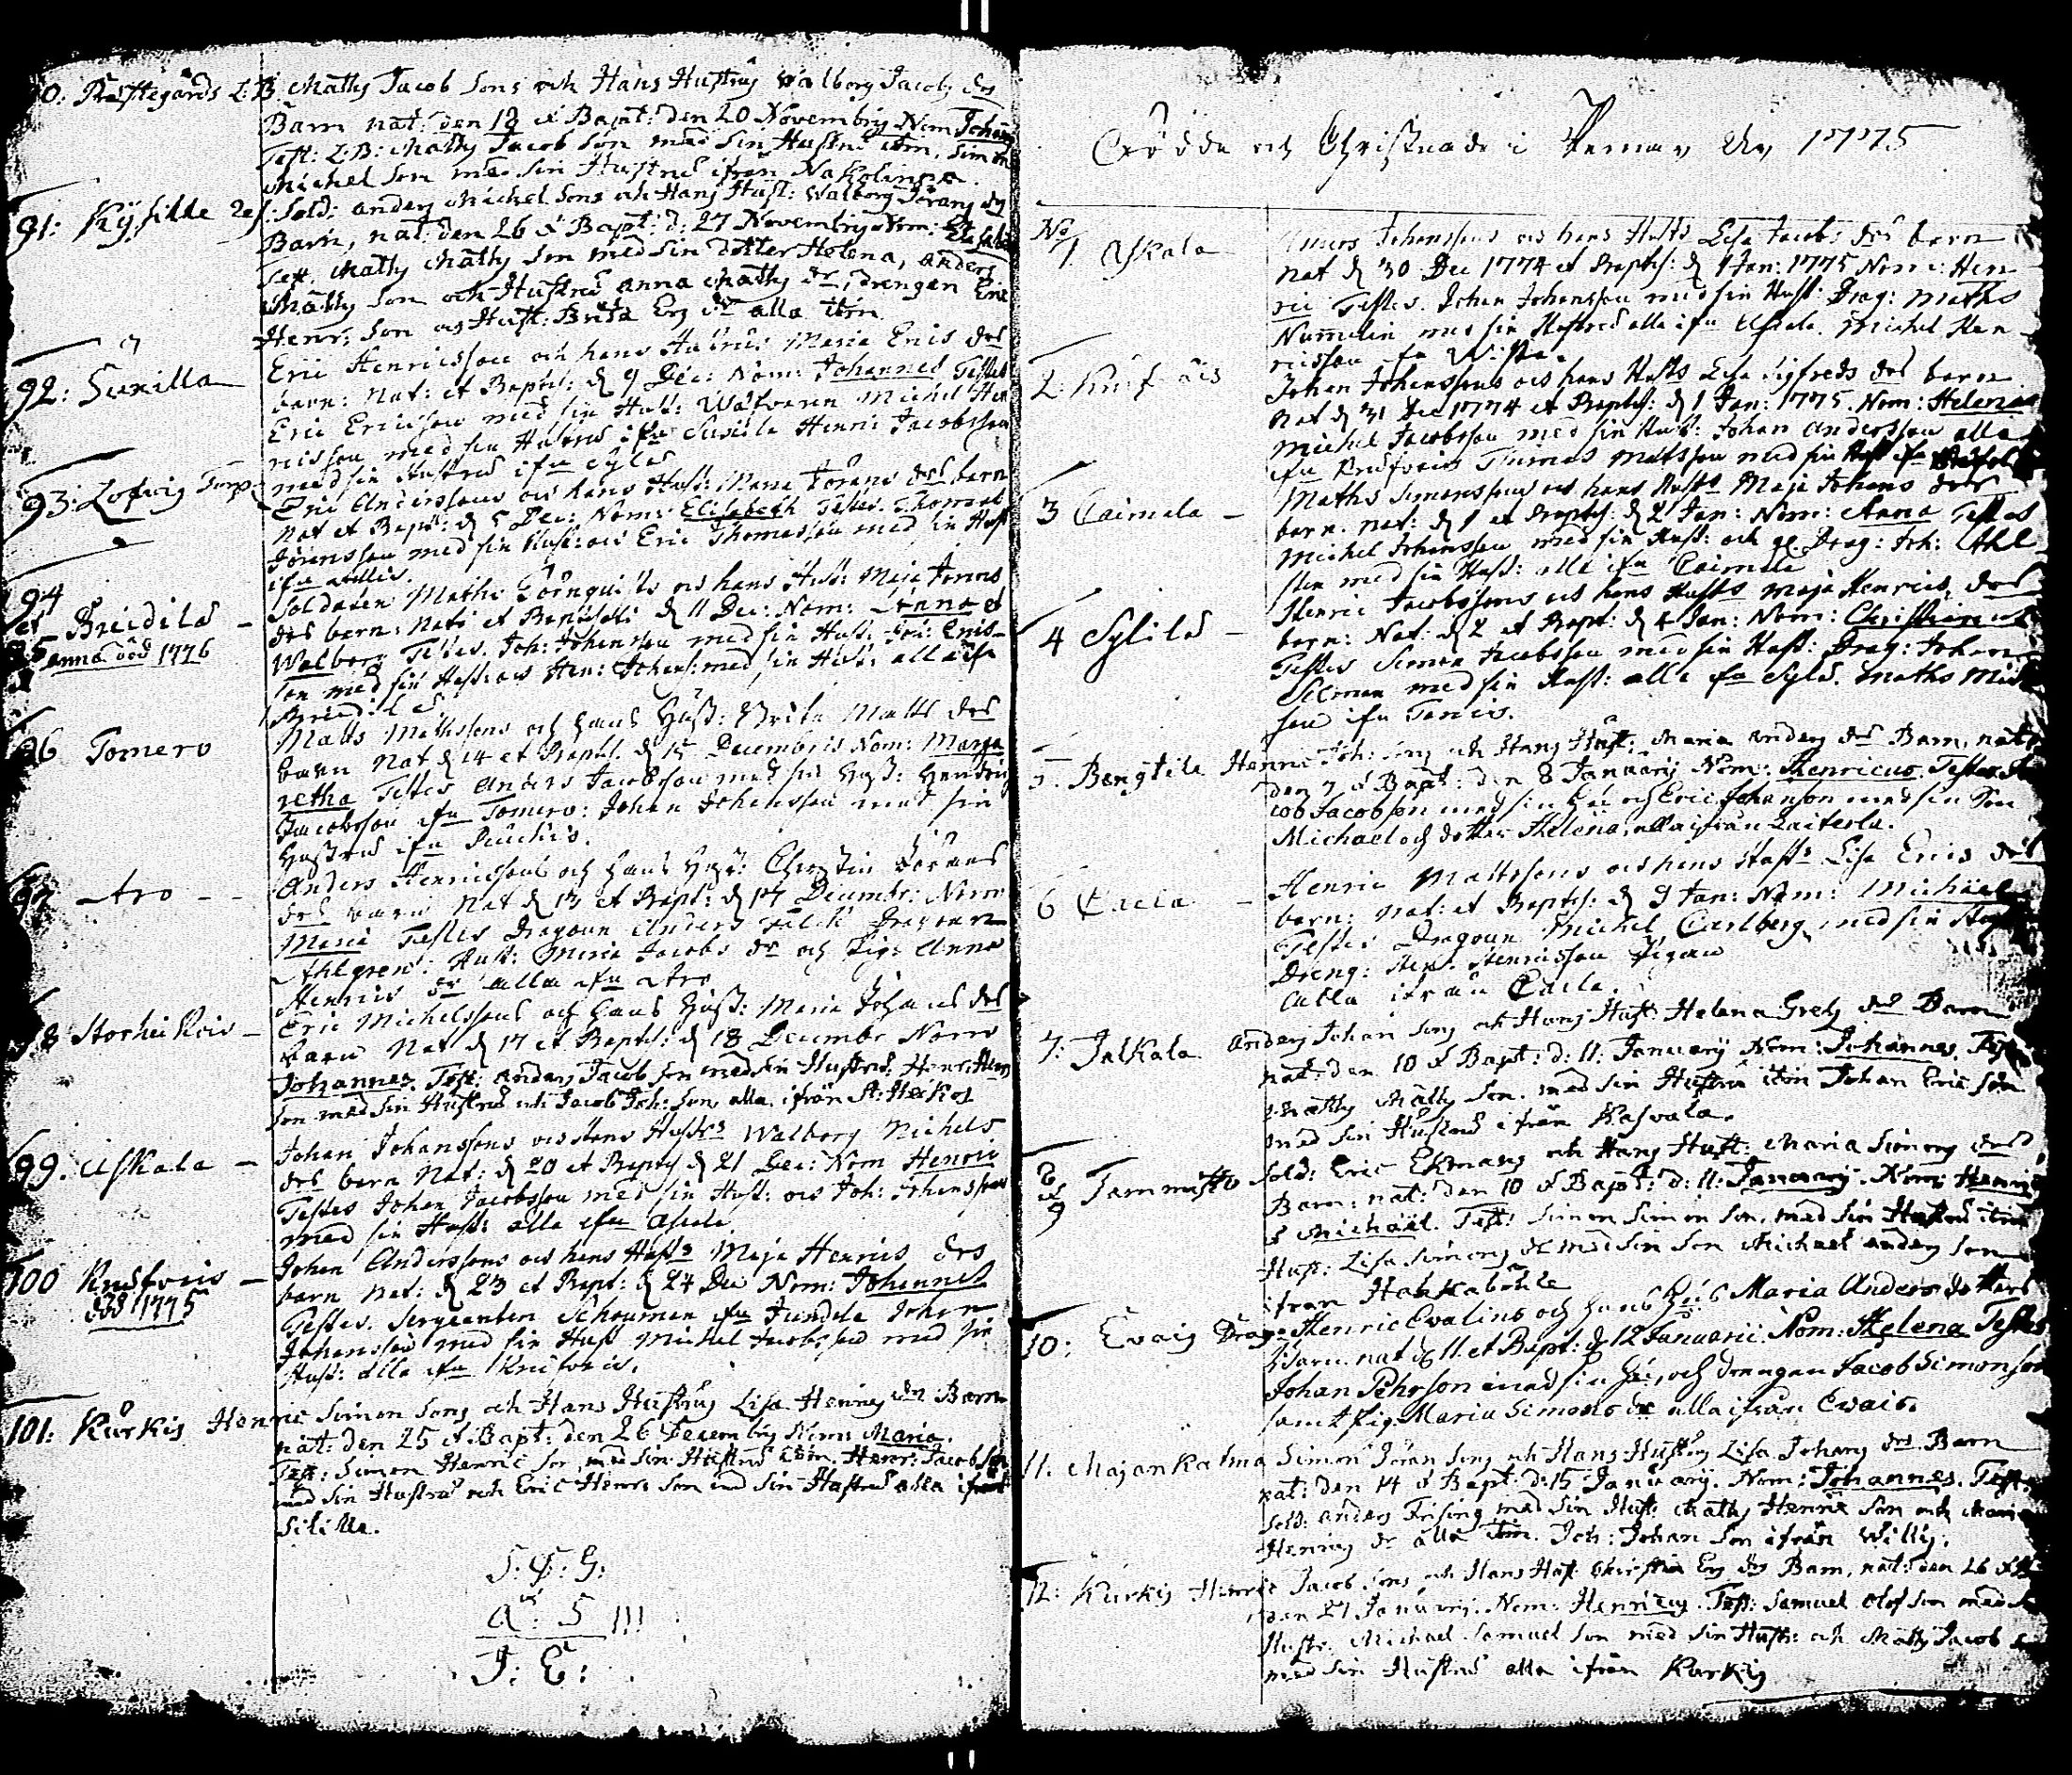 Prästegårds L:B. Matts Jacob Sons och Hans Hustrus Walborg Jacobs des
Barn nat: den 18 & Bapt: den 20 Novembris Nom Johannes
Test: L:B: Matts Jacob Son med Sin Hustru item, Simon
Michel Son med Sin Hustru ifrån Nakolinna.
91: Kysilde Sold: Anders Michel Sons och Hans Hust: Walborg Jörans des
Barn, nat: den 26 & Bapt: d: 27 Novembris Nom: Elisabe
Test. Matts Matts Son med Sin dotter Helena, Anders
Matts Son och Hustru Anna Matts dr, drengen Eric
Henr: Son och Hust: Brita Ers dr alla item
92: Suxilla
Eric Henricssons och hans Hustrus Maria Erics des
barn: Nat: et Bapt: d 9 Dec: Nom: Johannes Testes
Eric Ericsson med sin Hust: Michel Hen
ricsson med sin Hustru ifn Suxilla Henric Jacobsson
med sin Hustru ifn Syld
93: Lofwig Torp
Eric Anderssons och hans Hust: Maria Jörans des barn
Nat et Bapt: d 5 Dec: Nom: Elisabeth Testes. Thomas
Jöransson med sin Hust: och Eric Thomasson med sin Hust
ifn
94 et
Breidild
anna död 1776
Soldaten Matts Törnquists och hans Hust: Maja Jörans
des barn: Nati et Baptisati d 11 Dec: Nom: Anna et
Walborg Testes. Joh: Johansson med sin Hust: Eric
son med sin Hust: och Hen: Johans: med sin Hust: alla ifn
Breidild
96 Tomero
Matts Mattssons och hans Hust: Brita Matts des
barn Nat d 14 et Bapt: d 15 Decembris Nom: Marga
retha Testes Anders Jacobsson med sin Hust: Hendric
Jacobsson ifn Tomero: Johan Johansson med sin
Hustru ifn
97 Aro - -
Anders Henricssons och hans Hust: Christin Jörans
des barn Nat d 13 et Bapt: d 17 Decembr: Nom
Maria Testes Dragoun Anders Falck Dragoun
Ahlgren: Hust: Maria Jacobs dr och Pig: Anna
Henrics dr alla ifn Aro
98 Storheikois -
Eric Michelssons och hans Hust: Maria Johans des
barn Nat d 17 et Bapt: d 18 Decembr Nom
Johannes. Test: Anders Jacob Son med Sin Hustru: Henr: Hen
Son med Sin Hustru och Jacob Joh: Son, alla ifrån St: Heikos
99. Askala -
Johan Johanssons och Hans Husts Walborg Michels
des barn Nat: d 20 et Bapt: d 21 Dec: Nom Henric
Testes Johan Jacobsson med sin Hust: och Joh: Johansson
med sin Hust: alla ifn Askala
100 Knifsvis -
död 1775
Johan Anderssons och hans Husts Maja Henrics des
barn Nat: d 23 et Bapt: d 24 Dec Nom: Johannes
Testes. Sergeanten Schouman ifn Jundola Johan
Johansson med sin Hust Michel Jacobsson med sin
Hust: alla ifn
101: Kurkis Henric Simon Sons och Hans Hustrus Lisa Henrics des Barn
nat: den 25 & Bapt: den 26 Decembris Nom: Maria.
Test: Simon Henric Son, med Sin Hustru item. Henr: Jacob Son
med Sin Hustru och Eric Henr: Son med Sin Hustru alla ifrån
Silille.
S: D: G:
A: S !!!
J: E:
Födde och Christnade i Pemar År 1775
No
1 Askala
Johanssons och hans Husts Lisa Jacobs des barn
nat d 30 Dec 1774 et Bapt: d 1 Jan: 1775 Nom: Hen
ric Testes. Johan Johansson med sin Hust: Drag: Matts
Nummelin med sin Hustru alla ifn Askala. Michel Hen
ricsson ifn Wista.
2.
Johan Johanssons och hans Husts Lisa Sigfreds des barn
Nat d 31 Dec 1774 et Bapt: d 1 Jan: 1775. Nom: Helena
Michel Jacobsson med sin Hust: Johan Andersson alla
ifn Thomas Mattsson med sin Hust ifn
3 Caimala -
Matts Simonssons och hans Husts Maja Johans des
barn. nat: d 1 et Bapt: d 2 Jan: Nom: Anna Testes
Michel Johansson med sin Hust: och gl: Drag: Joh: Ahl
sten med sin Hust: alla ifn Caimala
4 Sylild -
Henric Jacobssons och hans Husts Maja Henrics des
barn: Nat: d 2 et Bapt: d 4 Jan: Nom: Christina
Testes Simon Jacobsson med sin Hust: Drag: Johan
med sin Hust: alla ifn Syld. Matts Mick
son ifn
5. Bengtile Henric Joh: Sons och Hans Hust: Maria Anders des Barn, nat:
den 7 & Bapt: den 8 Januarii Nom: Henricus. Testes Ja
cob Jacobson med sin Hu: och Eric Johanson med sin Son
Michael och dotter Helena, alla ifrån Laiterla.
6 Caela -
Henric Mattssons och hans Husts Lisa Erics des
barn: Nat: et Bapt: d 9 Jan: Nom: Michael
Testes Dragoun Michel Carlberg med sin Hust
Dreng: Hen: Henricsson Pigan
alla ifrån Caela.
7: Jalkala Anders Johan Sons och Hans Hust: Helena Grels des Barn
nat: den 10 & Bapt: d: 11: Januarii Nom: Johannes. Test
Matts Matts Son. med Sin Hustru item Johan Eric Son
med Sin Hustru ifrån Kasvala.
8 & 9 Tammisto Sold: Eric Ekmans och Hans Hust: Maria Simons des
Barn: nat: den 10 & Bapt: d: 11: Januarii. Nom: Henric
& Michael. Test: Simon Simon Son, med Sin Hustru item
Hust: Lisa Simons dr med Sin Son Michael Anders Son
ifrån Haikaböhle
10: Evais Drag: Henric Evalins och hans Hu:s Maria Anders dotters
Barn. nat d 11. et Bapt: d 12 Januarii. Nom: Helena Testes
Johan Pehrson med sin Hu:, och drengen Jacob Simonson
samt Pig: Maria Simons dr alla ifrån Evais.
11. Majankalma Simon Jöran Sons och Hans Hustrus Lisa Johans des Barn
nat: den 14 & Bapt: d: 15 Januarii. Nom: Johannes. Test:
Sold: Anders Frising med Sin Hust: Matts Henric Son och Maria
Henrics dr alla item. Joh: Johan Son ifrån Willis.
12: Kurkis Henric Jacob Sons och Hans Hust: Christin Ers des Barn, nat: den 26 &
den 27 Januarii. Nom: Henricus. Test: Samuel Olof Son med
Hustr. Michael Samuel Son med Sin Hustr: och Matts Jacob
med Sin Hustru alla ifrån Kurkis